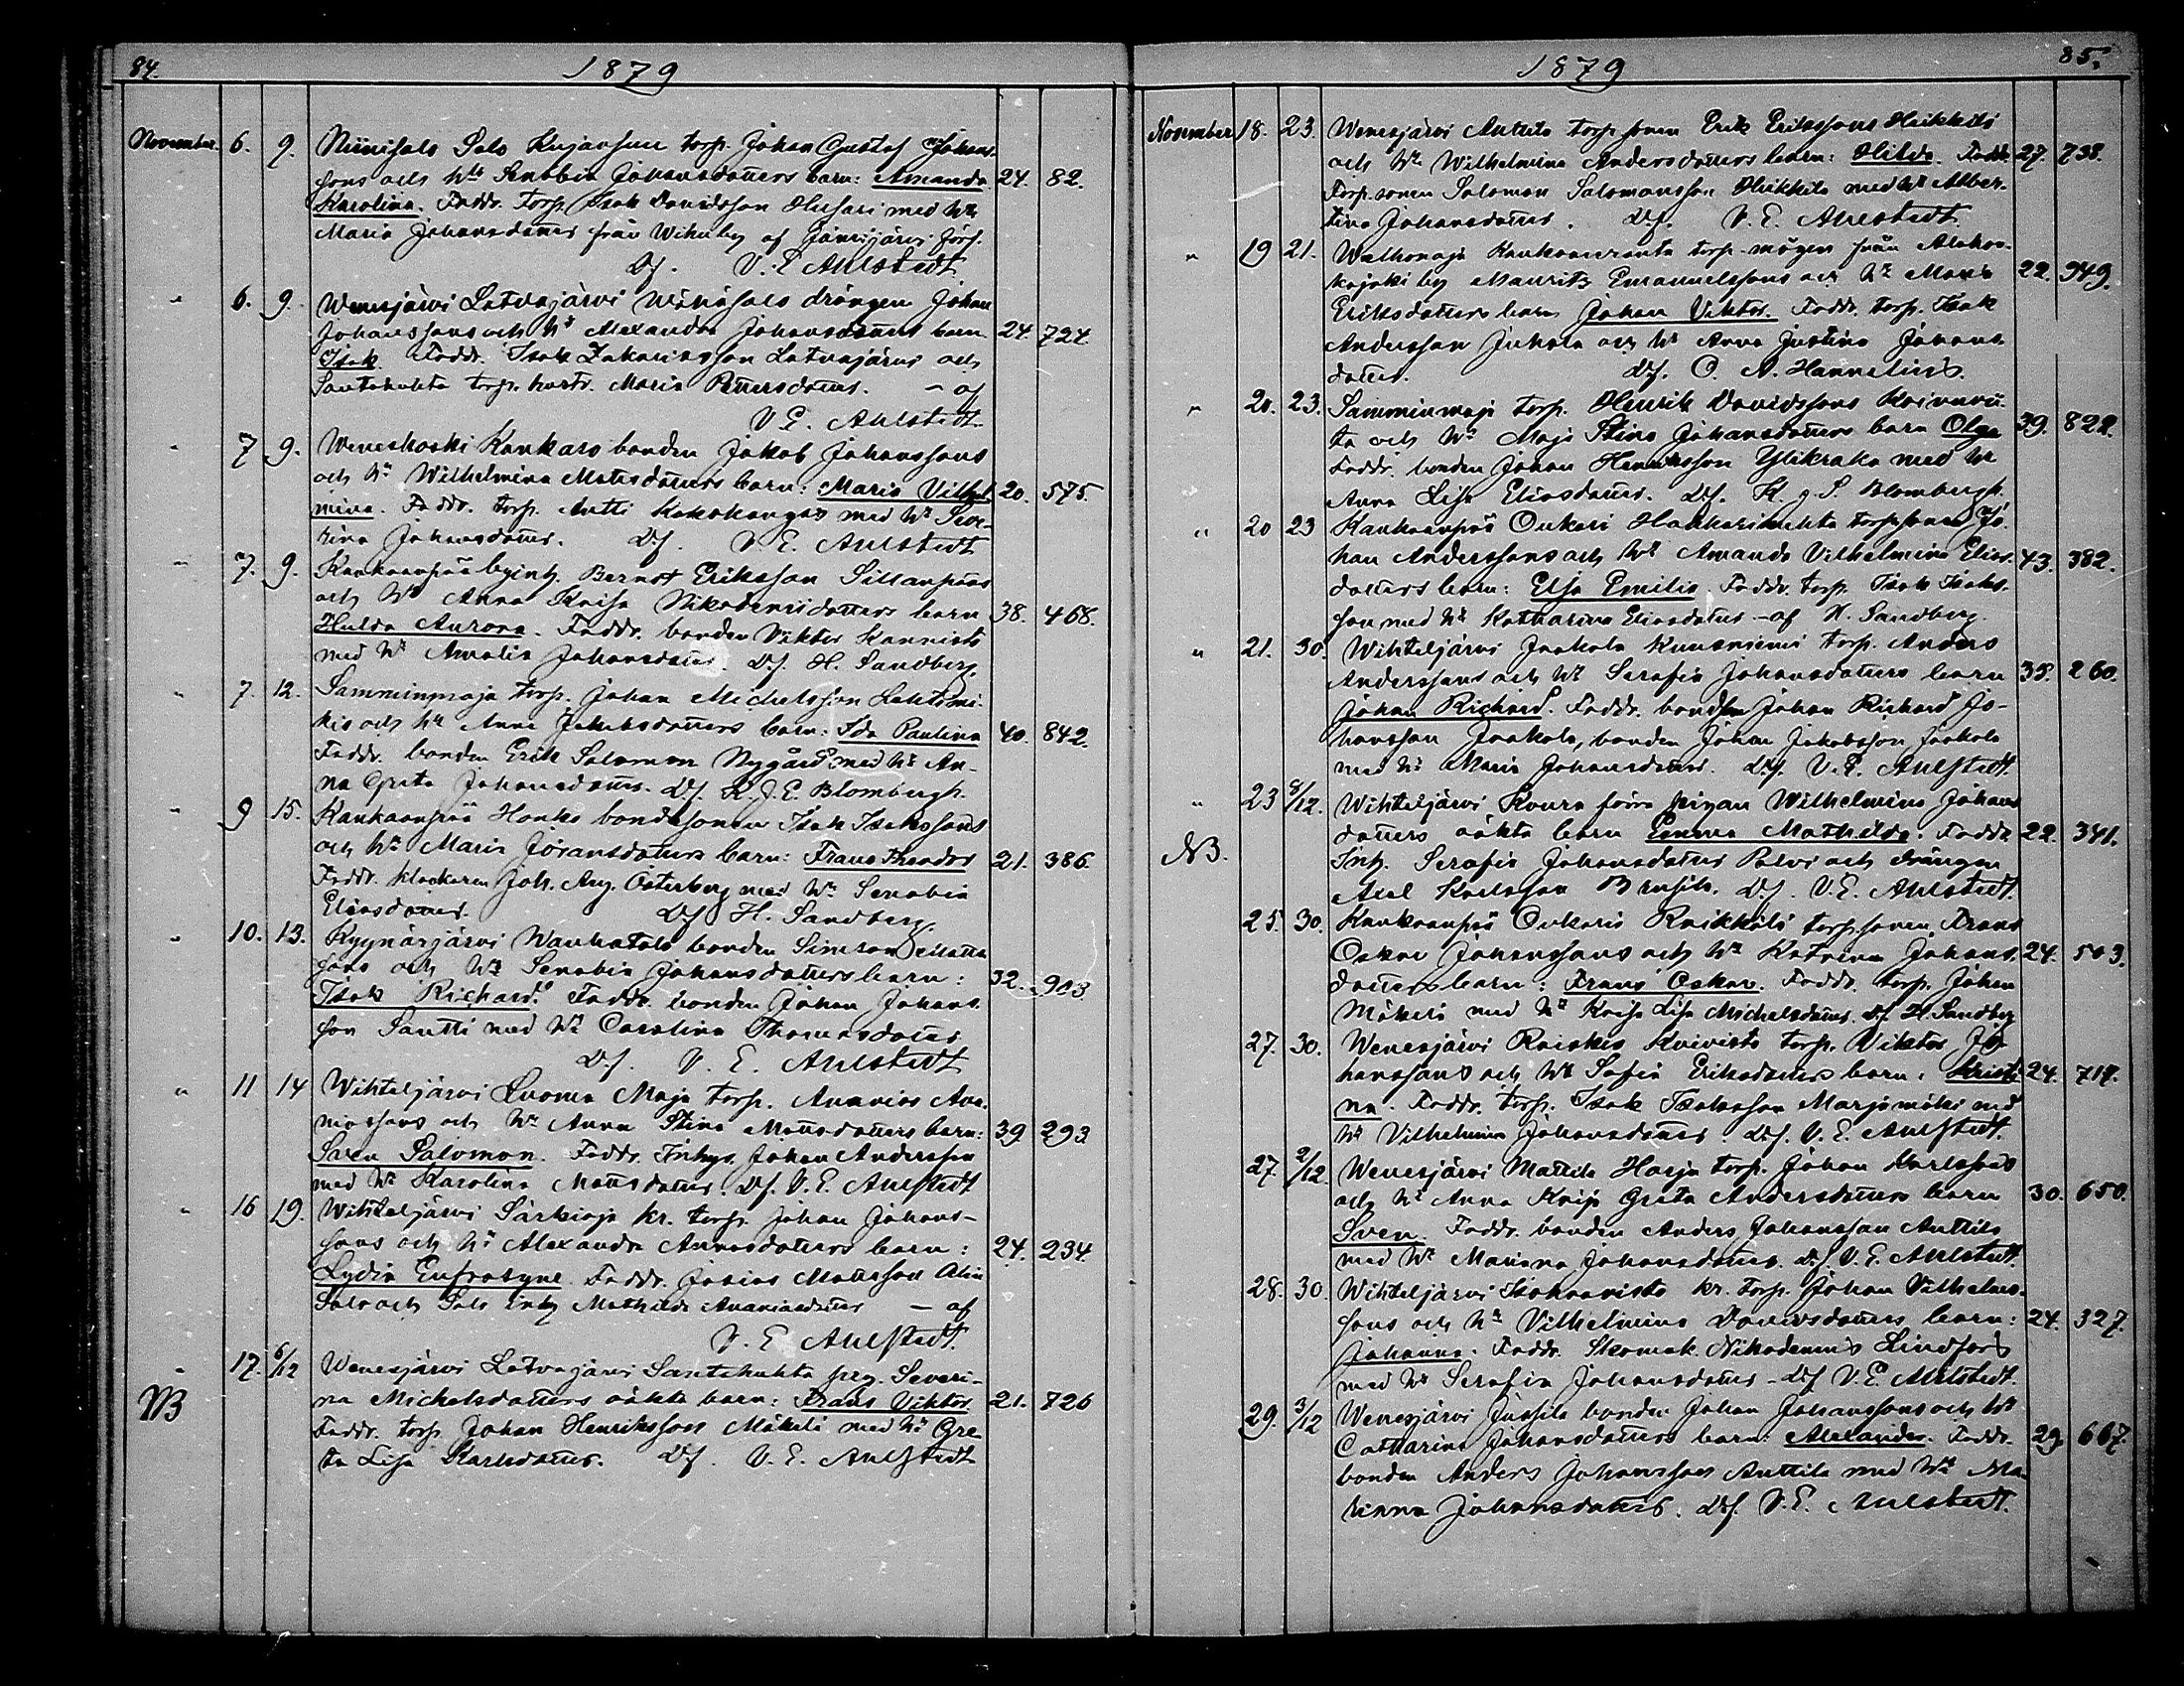 84. 1879
November. 6. 9. Niinisalo Salo Kujansuu torp. Johan Gustaf Johans-
sons och h:s Senabia Johansdotters barn: Amanda 24. 82.
Karolina. Faddr. torp. Isak Davidsson Husari med h:
Maria Johansdotter från Wihu by af Jämijärvi förs.
Df. V. E. Ahlstedt
" 6. 9. Wenesjärvi Latvajärvi Niinisalo drängen Johan
Johanssons och h:s Alexandra Johansdotters barn 24. 724.
Isak. Faddr. Isak Zakariasson Latvajärvi och
Santahuhta torp. hustr. Maria dotter. – af
V. E. Ahlstedt
" 7 9. Weneskoski Kankars bonden Jakob Johanssons
och h:s Wilhelmina Matsdotters barn: Maria Vilhel- 20. 575.
mina. Faddr. torp. Antti Kokokangas med h: Seve-
rina Johansdotter. Df. V. E. Ahlstedt
" 7. 9. Kankaanpää byinh. Bernst Eriksson Sillanpääs
och h:s Anna Kaisa Nikodemidotters barn 38. 468.
Hulda Aurora. Faddr. bonden Viktor Kannisto
med h: Amalia Johansdotter. Df. H. Sandberg.
" 7. 12. Samminmaja torp. Johan Michelsson Lahtimi-
kis och h:s Anna Jakobsdotters barn: Ida Paulina 40. 842.
Faddr. bonden Erik Salomon Nygård med h: An-
na Greta Johansdotter. Df. K. J. E. Blombergh.
" 9 15. Kankaanpää Honko bondesonen Isak Isakssons
och h:s Maria Göransdotters barn: Frans Theodor 21. 386.
Faddr. klockaren Joh. Aug. Österberg med h: Senabia
Eliasdotter. Df. H. Sandberg.
" 10. 13. Kyynärjärvi Wanhatalo bonden Simson Matts
sons och h:s Senabia Johansdotters barn: 32. 903
Isak Richard. Faddr. bonden Johan Johans-
son Santti med h: Carolina Thomasdotter
Df. V. E. Ahlstedt
" 11 14 Wihteljärvi Luoma Maja torp. Ananias Ana-
niassons och h:s Anna Stina Mattsdotters barn: 39 293.
Sven Salomon. Faddr. Inhys. Johan Andersson
med h: Karolina Mattsdotter. Df. V. E. Ahlstedt
" 16 19. Wihteljärvi Särkioja kr. torp. Johan Johans-
sons och h:s Alexandra Annasdotters barn: 24. 234.
Lydia Eufrosyne. Faddr. Josias Mattsson Alin
Salo och Salo inh. Mathilda Ananiasdotter – af
V. E. Ahlstedt.
" 17. 6/12 Wenesjärvi Latvajärvi Santahuhta pig. Severi-
NB na Michelsdotters oäkta barn: Frans Viktor 21. 726
Faddr. torp. Johan Henriksson Mäkelä med h: Gre-
ta Lisa Karlsdotter. Df. V. E. Ahlstedt
1879 85.
November 18. 23. Wenesjärvi Anttila torp. sonen Erik Erikssons Heikkilä
och h:s Wilhelmina Andersdotters barn: Hilda. Faddr. 27. 738.
Torp. sonen Salomon Salomonsson Heikkilä med h: Alber-
tina Johansdotter. Df. V. E. Ahlstedt.
" 19 21. Walkonaja Kankaanranta torp. mågen från Alahon-
kajoki by Maurits Emanuelssons och h:s Maria 22. 949.
Eriksdotters barn Johan Viktor. Faddr. torp. Isak
Andersson Juhola och h: Anna Justina Johans-
dotter. Df. O. A. Hannelius.
" 20. 23. Samminmaja torp. Henrik Davidssons Koivuvii-
ta och h:s Maja Stina Johansdotters barn Olga 39. 822.
Faddr. bonden Johan Henriksson Ylikraka med h:
Anna Lisa Eliasdotter. Df. K. J. E. Blombergh.
" 20 23 Kankaanpää Onkari Hankarimehta torp. sonen Jo-
han Anderssons och h:s Amanda Vilhelmina Elias- 43. 382.
dotters barn: Elsa Emilia. Faddr. torp. Isak Isaks-
son med h: Katharina Eliasdotter – af H. Sandberg.
" 21. 30. Wihteljärvi Jaakola Kuusniemi torp. Anders
Anderssons och h:s Serafia Johansdotters barn 35. 260.
Johan Richard. Faddr. bondson Johan Richard Jo-
hansson Jaakola, bonden Johan Jakobsson Jaakola
med h: Maria Johansdotter. Df. V. E. Ahlstedt.
" 23 8/12. Wihteljärvi Koura förra pigan Wilhelmina Johans
NB. dotters oäkta barn Emma Mathilda. Faddr. 22. 341.
Inh. Serafia Johansdotter Palvi och drängen
Axel Karlsson Brusila. Df. V. E. Ahlstedt.
25. 30. Kankaanpää Onkaris Raikkälä torp. sonen Frans
Oskar Johanssons och h:s Katrina Johans- 24. 503.
dotters barn: Frans Oskar. Faddr. torp. Johan
Mäkelä med h: Kaisa Lisa Michelsdotter. Df. H. Sandberg
27. 30. Wenesjärvi Raiskio Koivisto torp. Viktor Jo-
hanssons och h:s Sofia Eriksdotters barn: Kristi- 24. 717.
na. Faddr. torp. Isak Isaksson Marjamäki med
h: Vilhelmina Johansdotter. Df. V. E. Ahlstedt.
27. 2/12. Wenesjärvi Mattila Harju torp. Johan Karlssons
och h:s Anna Kaisa Greta Andersdotters barn 30. 650.
Sven. Faddr. bonden Anders Johansson Anttila
med h: Marianna Johansdotter. Df. V. E. Ahlstedt.
28. 30. Wihteljärvi Isokoivisto kr. torp. Johan Vilhelms-
sons och h:s Vilhelmina Davidsdotters barn: 24. 327.
Johanna. Faddr. Skomak. Nikodemus Lindfors
med h: Serafia Johansdotter – Df. V. E. Ahlstedt.
29. 3/12 Wenesjärvi Jussila bonden Johan Johanssons och h:s
Catharina Johansdotters barn: Alexander. Faddr. 29. 667.
bonden Anders Johansson Anttila med h: Ma-
rianna Johansdotter. Df. V. E. Ahlstedt.